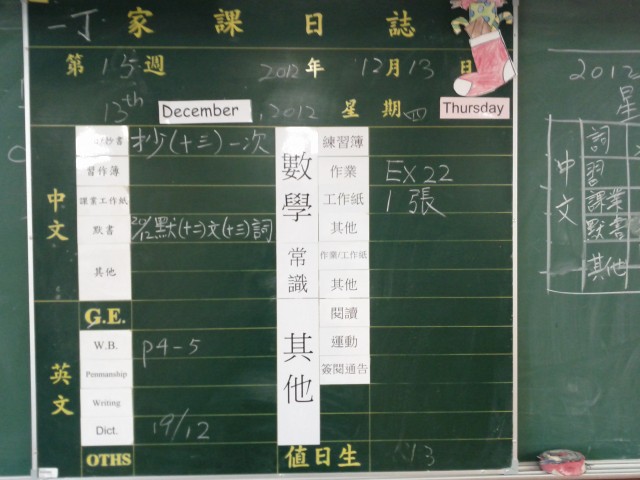 一丁 家課日誌
第 15 週 2012 年 12 月 13 日
13th December, 2012 星期四 Thursday
中文
抄書 抄(十三)一次
習作簿
課業工作紙
默書 20/12 默(十二)文(十三)詞
其他
英文
G.E.
W.B. p4-5
Penmanship
Writing
Dict. 19/12
OTHS
數學
練習簿
作業 EX 22
工作紙 1張
其他
常識
作業/工作紙
其他
其他
閱讀
運動
簽閱通告
值日生 13
2012
星
中文
詞
習
課業
默書
其他